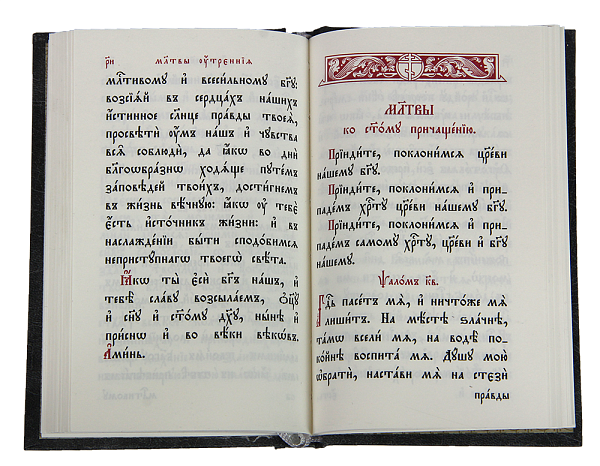 р҃и мл҃твы ᲂу҆́тренnїѧ
мл҃тивому и҆ всеси́льному бг҃у:
возсїѧ́й въ сердца́хъ на́шихъ
и҆́стинное сл҃нце пра́вды твоеѧ̀,
просвѣтѝ ᲂу҆́мъ на́шъ и҆ чу̑вства
всѧ̑ соблюдѝ, да ꙗ҆́кѡ во днѝ
бл҃гоѡбра́знѡ ходѧ́ще пꙋте́мъ
за́повѣдей твои́хъ, дости́гнемъ
въ жи́знь вѣ́чнꙋю: ꙗ҆́кѡ ᲂу҆ тебє̀
є҆́сть и҆сто́чникъ жи́зни: и҆ въ
наслажде́нїи бы́ти сподо́бимсѧ
непристꙋ́пнагѡ твоегѡ̀ свѣ́та.
Ꙗ҆́кѡ ты̀ є҆сѝ бг҃ъ на́шъ, и҆
тебѣ̀ сла́вꙋ возсыла́емъ, ѻ҆ц҃ꙋ̀
и҆ сн҃ꙋ и҆ ст҃о́мꙋ дх҃ꙋ, ны́нѣ и҆
при́снѡ и҆ во вѣ́ки вѣкѡ́въ.
А҆ми́нь.
МЛ҃ТВЫ
ко ст҃о́мꙋ причаще́нїю.
Прїиди́те, поклони́мсѧ цр҃е́ви
на́шемꙋ бг҃ꙋ.
Прїиди́те, поклони́мсѧ и҆ при-
паде́мъ хрⷭ҇тꙋ̀ цр҃е́ви на́шемꙋ бг҃ꙋ.
Прїиди́те, поклони́мсѧ и҆ при-
паде́мъ самомꙋ̀ хрⷭ҇тꙋ̀, цр҃е́ви и҆ бг҃ꙋ
на́шемꙋ.
Ѱало́мъ к҃в.
Гдⷭ҇ь пасе́тъ мѧ̀, и҆ ничто́же мѧ̀
лиши́тъ. На мѣ́стѣ ѕла́чнѣ,
та́мѡ вселѝ мѧ̀, на водѣ̀ по-
ко́йнѣ воспита́ мѧ. Дꙋ́шꙋ мою̀
ѡ҆братѝ, наста́ви мѧ̀ на стєзѝ
пра́вды